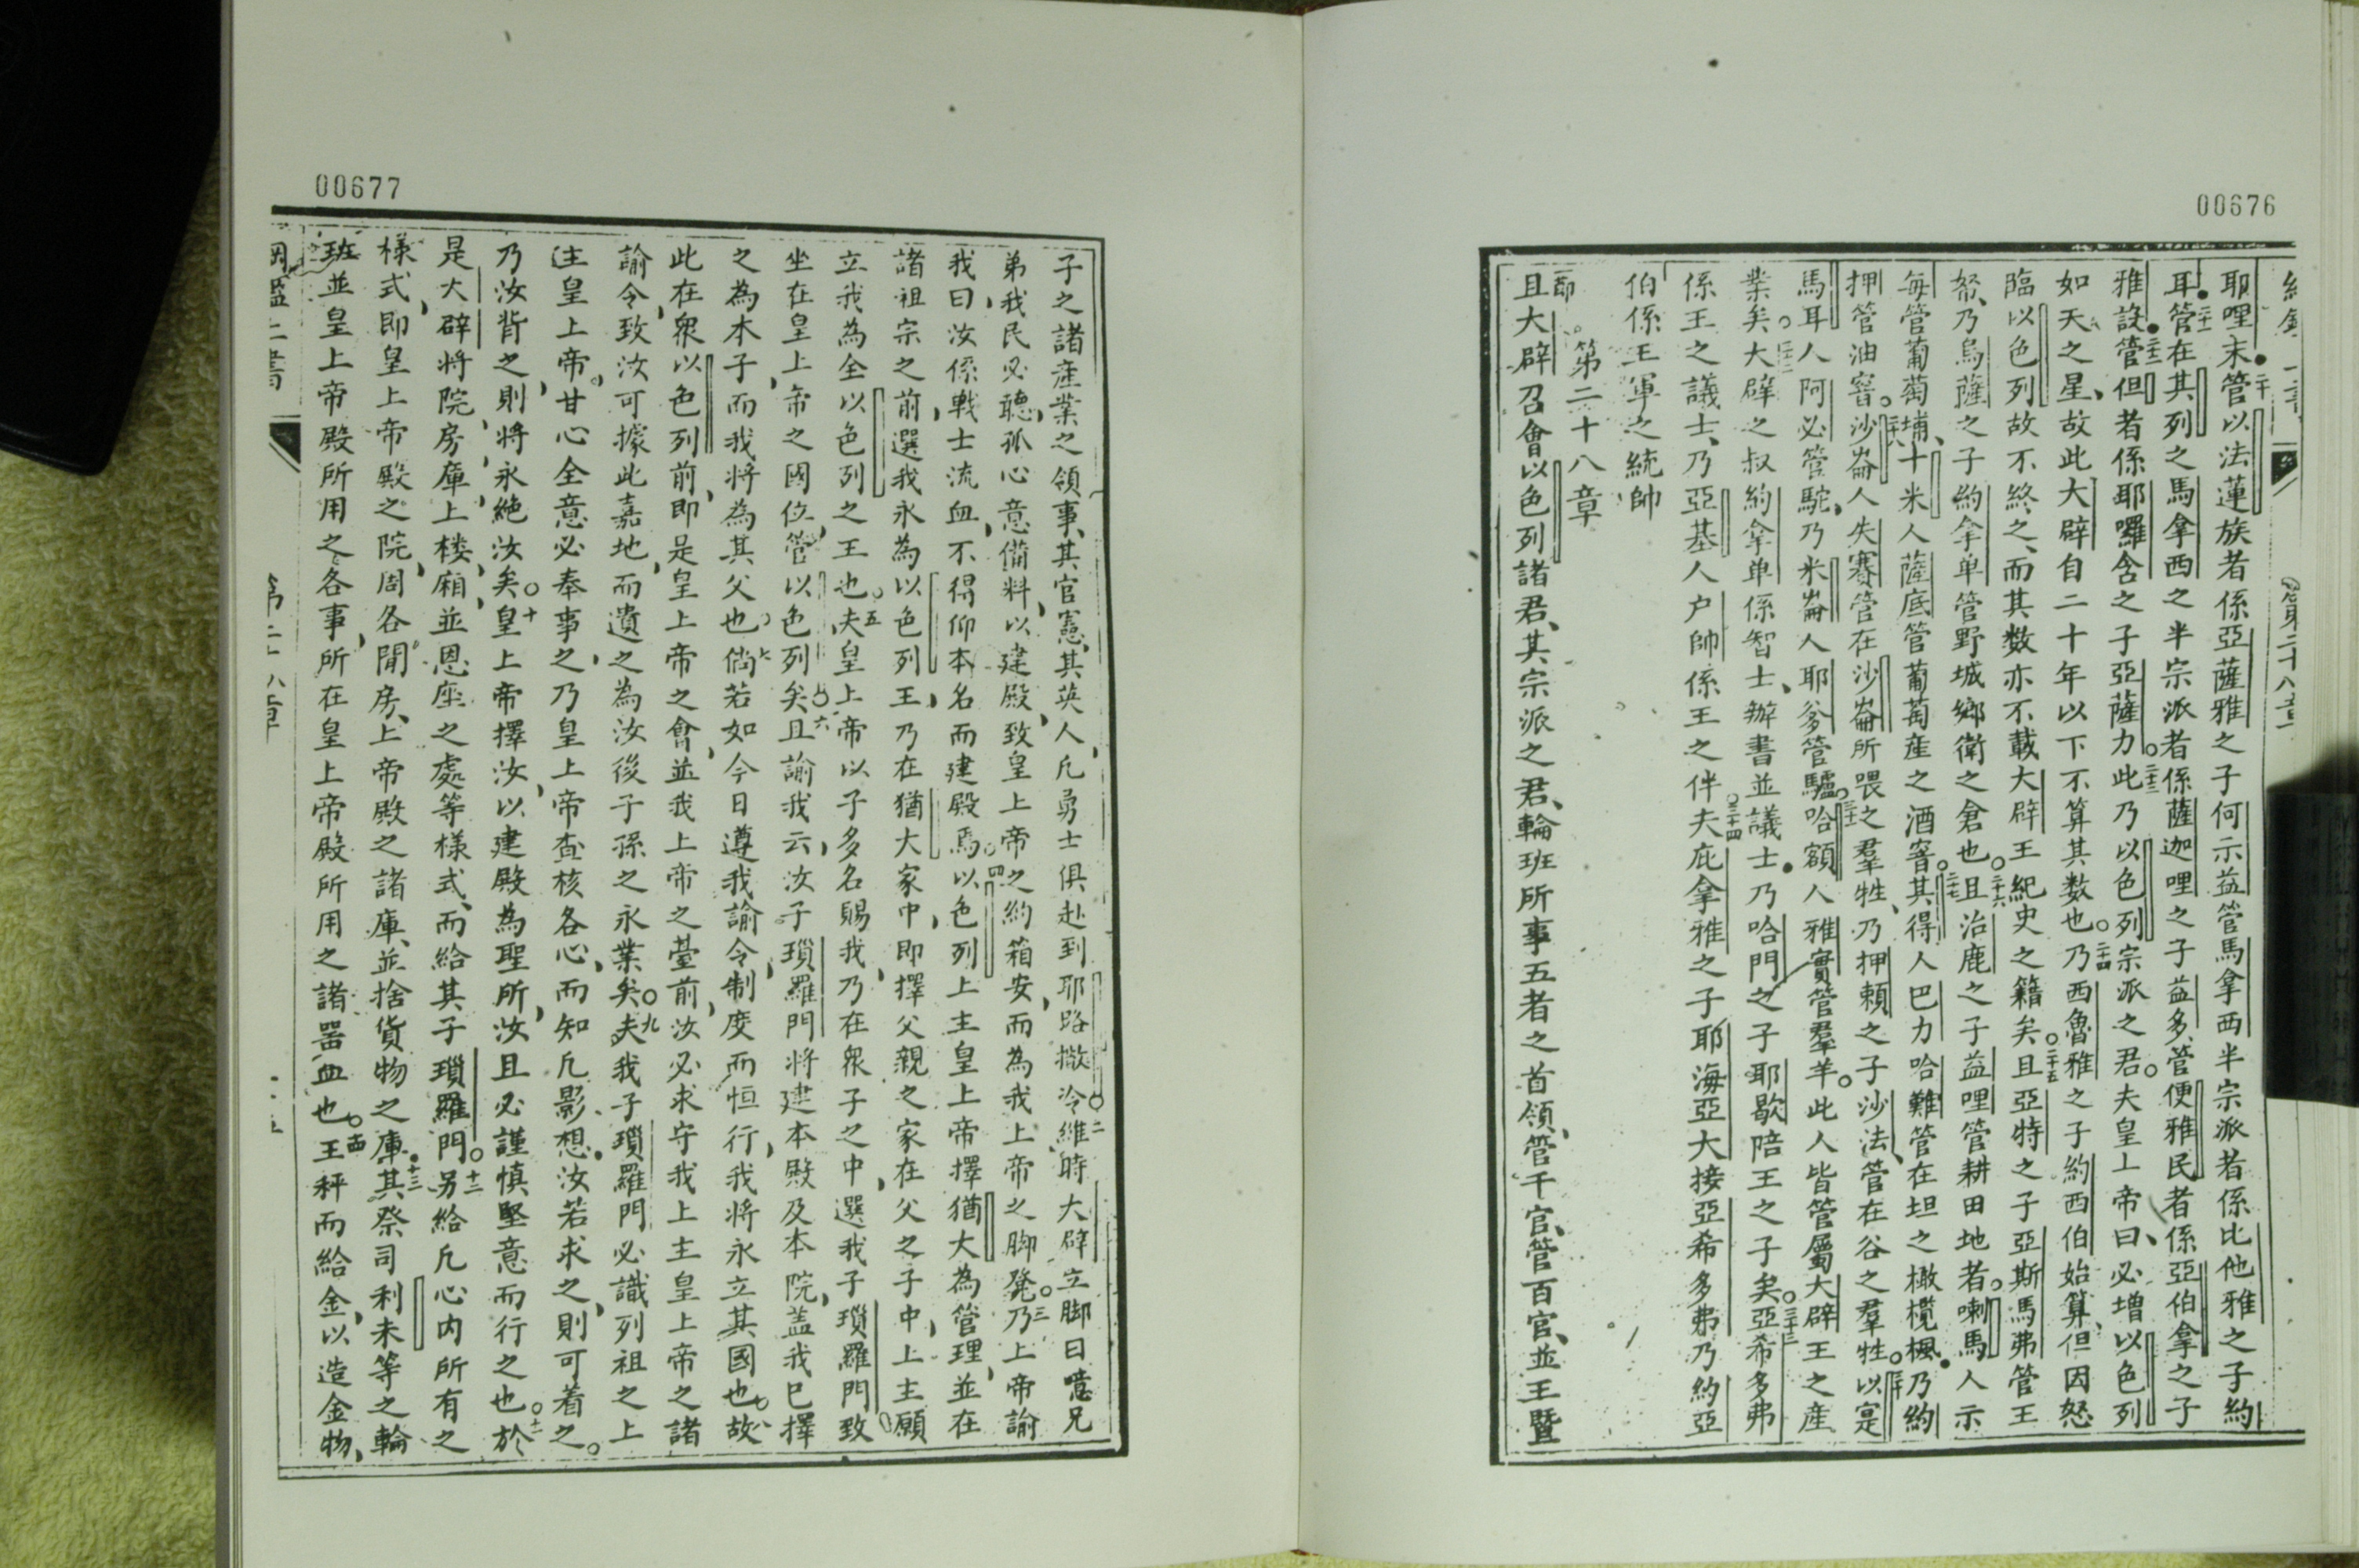 00676
耶哩末●二十管以法蓮族者係亞薩雅之子何示益管馬拿西半宗派者係比他雅之子約
耳●二十一管在其列之馬拿西之半宗派者係薩迦哩之子益多、管便雅民者係亞伯拿之子
雅設●二十二管但者係耶囉含之子亞薩力○二十三此乃以色列宗派之君○夫皇上帝曰、必增以色列
如天之星、故此大辟自二十年以下不算其数也○二十四乃西魯雅之子約西伯始算、但因怒
臨以色列故不終之、而其数亦不載大辟王紀史之籍矣○二十五且亞特之子亞斯馬弗管王
帑、乃烏薩之子約拿单管野城鄉衛之倉也○二十六且治鹿之子益哩管耕田地者○喇馬人示
每管葡萄埔、十米人薩底管葡萄産之酒窖○二十七其得人巴力哈難管在坦之橄欖楓●乃約
押管油窖○沙崙人失賽管在沙崙所喂之羣牲、乃押賴之子沙法管在谷之羣牲○三十以寔
馬耳人阿必管駝、乃米崙人耶爹管驢○三十一哈額人雅實管羣羊○此人皆管屬大辟王之産
業矣○三十二大辟之叔約拿单係智士、辦書並議士●乃哈門之子耶歇陪王之子矣○三十三亞希多弗
係王之議士、乃亞基人户帥係王之伴夫○三十四庇拿雅之子耶海亞大接亞希多弗乃約亞
伯係王軍之統帥
第二十八章
一節○且大辟召會以色列諸君、其宗派之君、輪班所事五者之首領、管千官、管百官、並王暨
00677
子之諸産業之領事、其官憲、其英人、凡勇士俱赴到耶路撒冷○二維時大辟立脚曰噫兄
弟我民必聽、孤心意備料、以建殿、致皇上帝之約箱安、而為我上帝之脚凳○三乃上帝諭
我曰、汝係戰士流血、不得仰本名而建殿焉○四以色列上主皇上帝擇猶大為管理、並在
諸祖宗之前、選我永為以色列王、乃在猶大家中、即擇父親之家在父之子中、上主願
立我為全以色列之王也○五夫皇上帝以子多名賜我、乃在衆子之中、選我子瑣羅門致
坐在皇上帝之國位、管以色列矣○六且諭我云、汝子瑣羅門將建本殿及本院、盖我已擇
之為本子、而我將為其父也○七倘若如今日遵我諭令、制度而恒行、我將永立其國也○八故
此在衆以色列前、即是皇上帝之會、並我上帝之臺前、汝必求守我上主皇上帝之諸
諭令、致汝可據此嘉地、而遺之為汝後子孫之永業矣○九夫我子瑣羅門必識列祖之上
主皇上帝○甘心全意必奉事之、乃皇上帝查核各心、而知凡影想、汝若求之、則可着之○
乃汝背之、則將永絶汝矣○十皇上帝擇汝、以建殿為聖所、汝且必謹慎堅意而行之也○十一於
是大辟將院、房、庫、上楼、廂、並恩座之處等樣式、而給其子瑣羅門○十二另給凡心内所有之
樣式、即皇上帝殿之院、周各閒房、上帝殿之諸庫、並捨貨物之庫●十三其祭司利未等之輪
班並皇上帝殿所用之各事、所在皇上帝殿所用之諸器皿也○十四王秤而給金、以造金物、